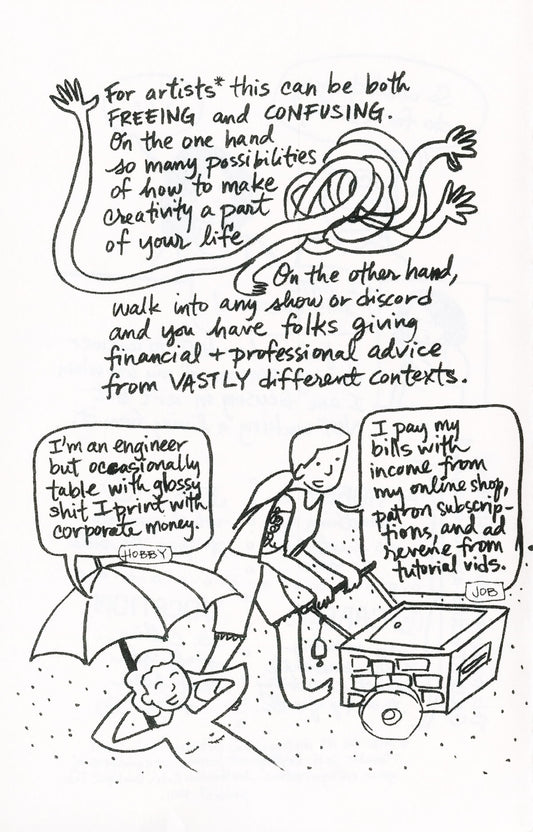 For artists* this can be both
FREEING and CONFUSING.
On the one hand
so many possibilities
of how to make
creativity a part
of your life
On the other hand,
walk into any show or discord
and you have folks giving
financial + professional advice
from VASTLY different contexts.
I'm an engineer
but occasionally
table with glossy
shit I print with
corporate money.
HOBBY
I pay my
bills with
income from
my online shop,
patron subscrip-
tions, and ad
revene from
tutorial vids.
JOB